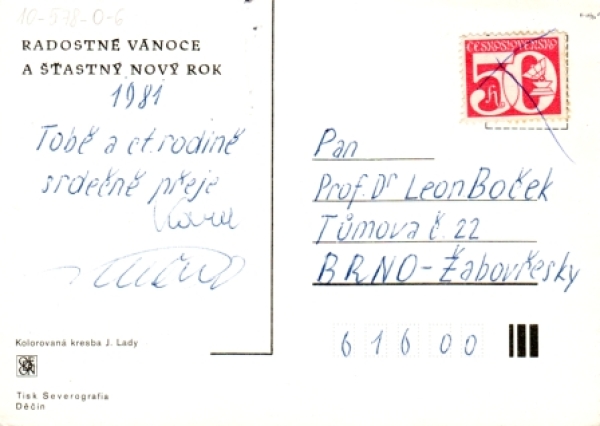 10-578-0-6
RADOSTNÉ VÁNOCE
A ŠŤASTNÝ NOVÝ ROK
1981
Tobě a ct. rodině
srdečně přeje
Karel
Kolorovaná kresba J. Lady
Tisk Severografia
Děčín
ČESKOSLOVENSKO
50
h
Pan
Prof. Dr Leon Boček
Tůmova č. 22
BRNO - Žabovřesky
616 00